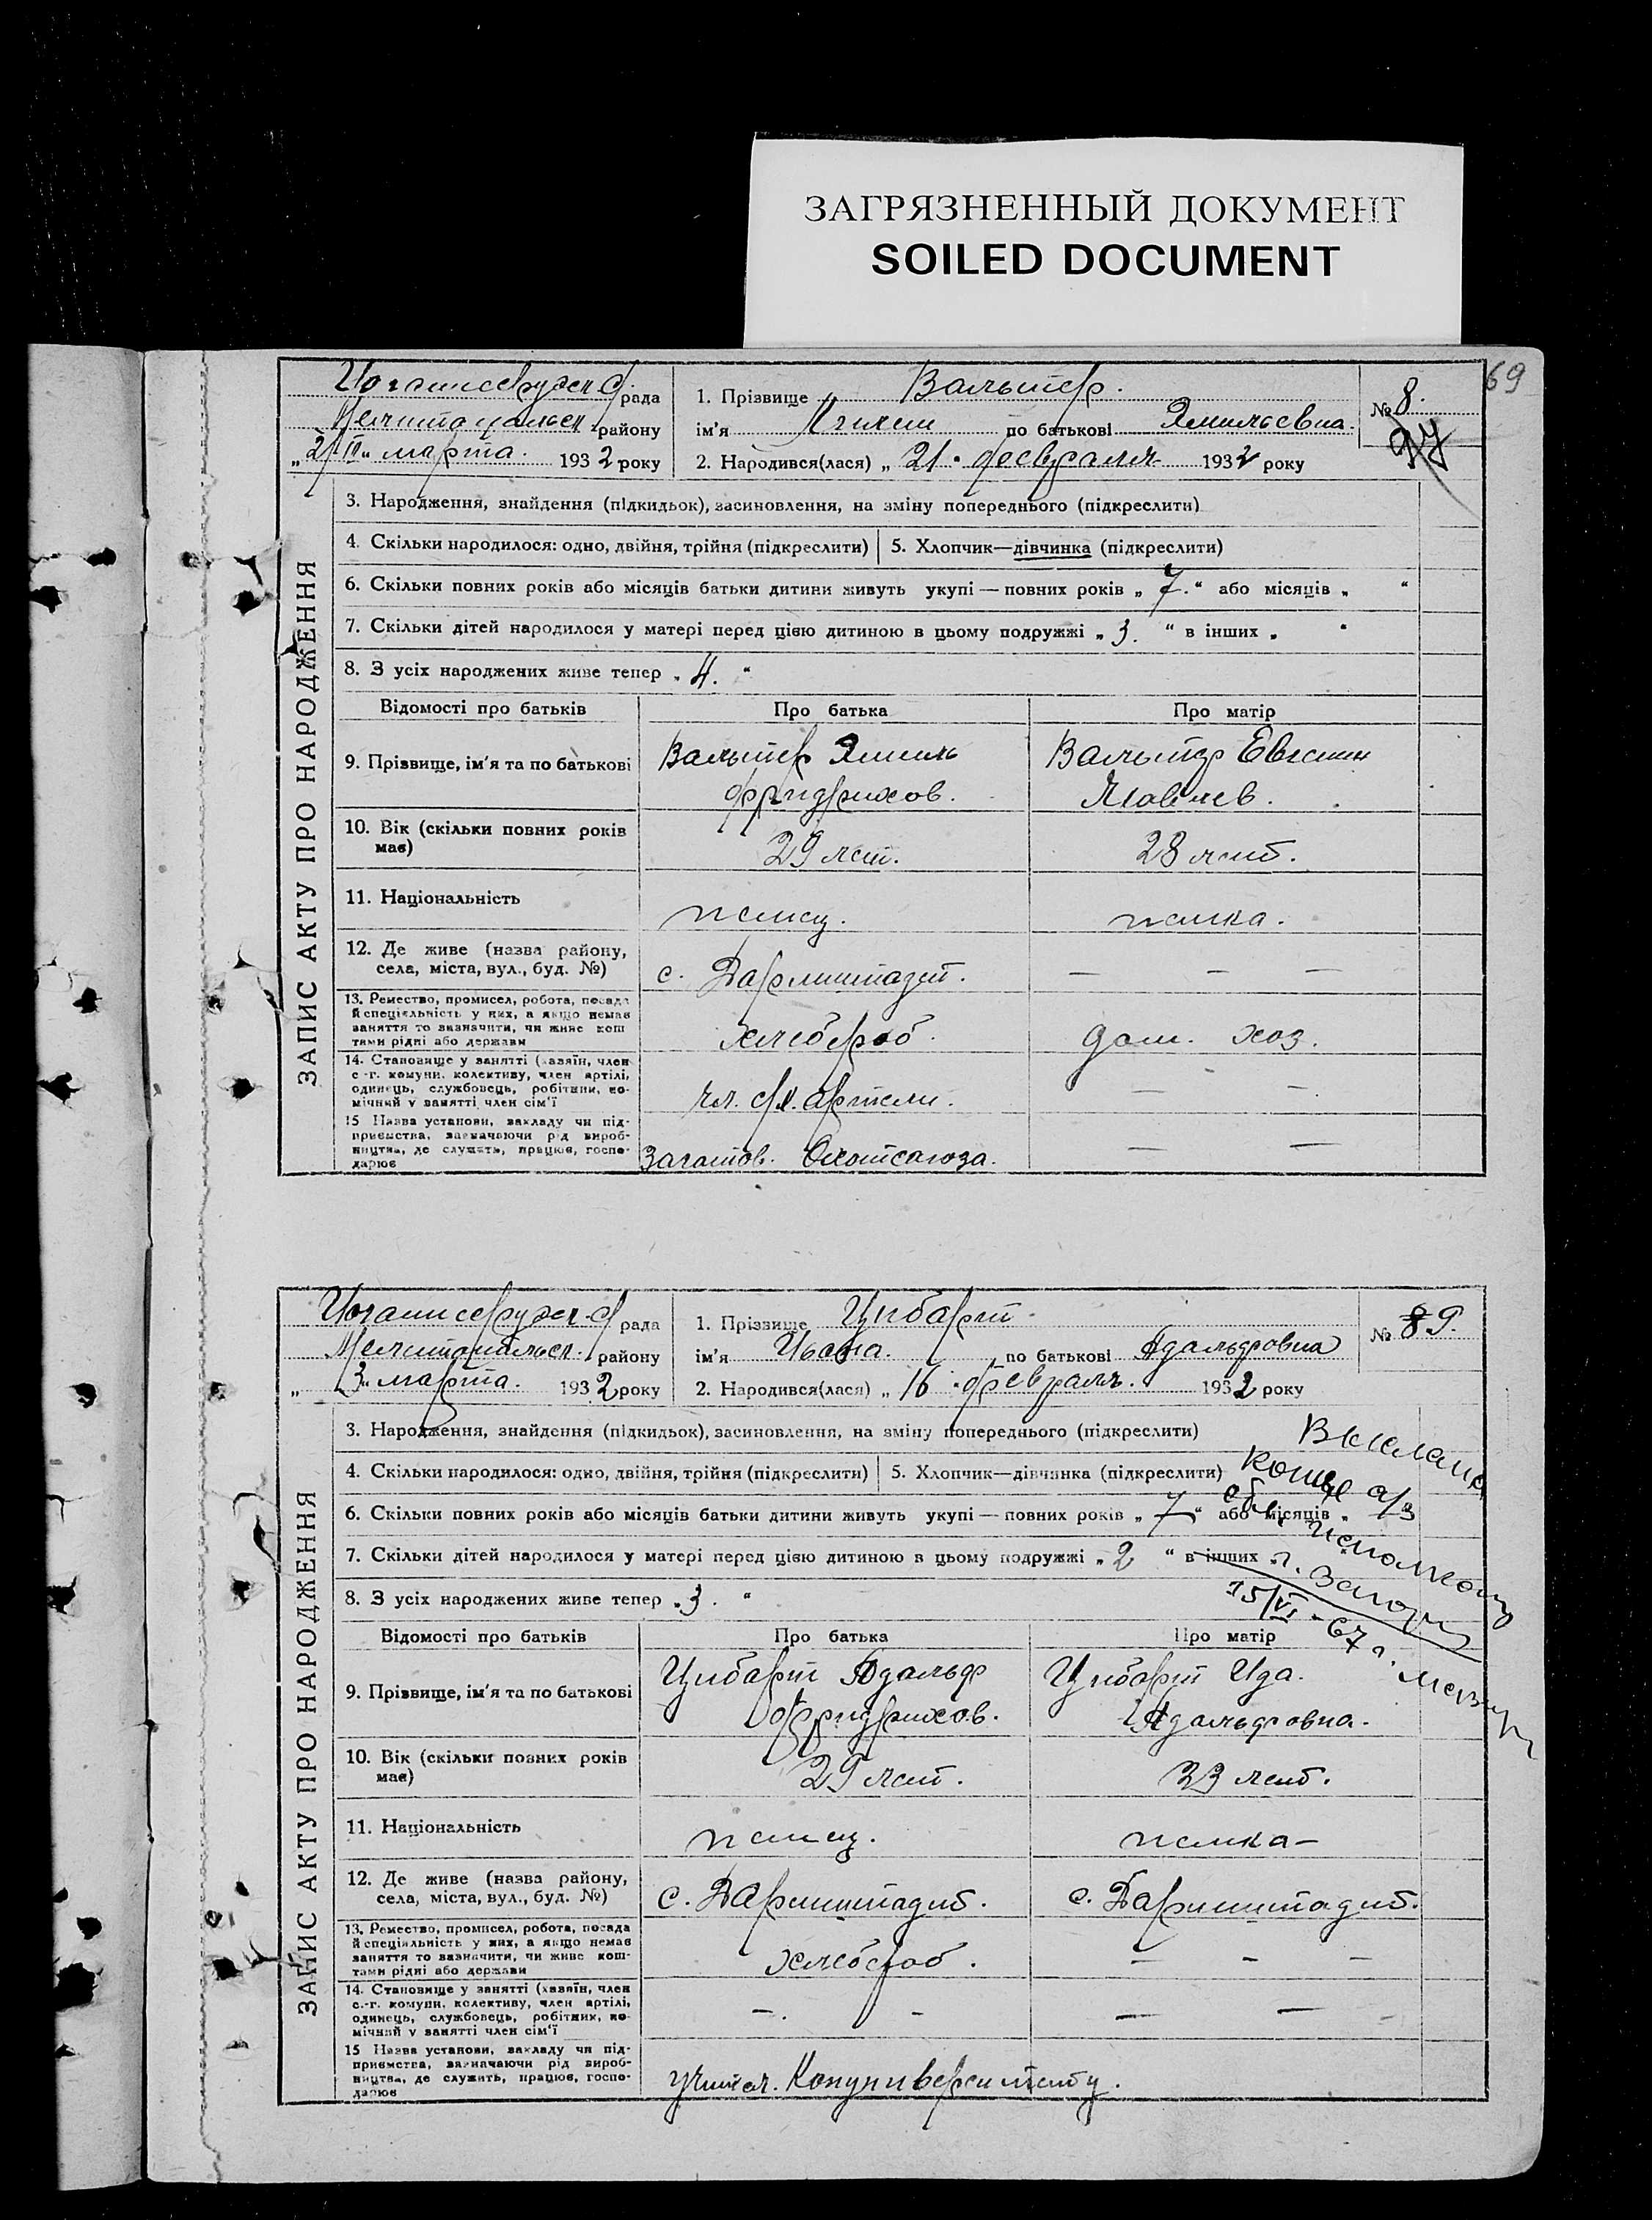 ЗАГРЯЗНЕННЫЙ ДОКУМЕНТ
SOILED DOCUMENT
69
рада
району
марта. 1932 року
1. Прізвище Вальтер.
ім'я по батькові Эмильевна.
2. Народився(лася) „ 21 . февраля 1932 року
№ 8.
97
ЗАПИС АКТУ ПРО НАРОДЖЕННЯ
3. Народження, знайдення (підкидьок), засиновлення, на зміну попереднього (підкреслити)
4. Скільки народилося: одно, двійня, трійня (підкреслити) 5. Хлопчик—дівчинка (підкреслити)
6. Скільки повних років або місяців батьки дитини живуть укупі — повних років „ 7. “ або місяців „ “
7. Скільки дітей народилося у матері перед цією дитиною в цьому подружжі „ 3. “ в інших „ “
8. З усіх народжених живе тепер „ 4. “
Відомості про батьків Про батька Про матір
9. Прізвище, ім'я та по батькові
Вальтер Эмиль
Фридрихов.
Вальтер
10. Вік (скільки повних років має)
29 лет. 28 лет.
11. Національність
немец. немка.
12. Де живе (назва району,
села, міста, вул., буд. №)
с. Дармштадт. — — —
13. Ремество, промисел, робота, посада
й спеціяльність у них, а якщо немає
заняття то визначити, чи живе кош
тами рідні або держави
хлебороб. дом. хоз.
14. Становище у занятті (хазяїн, член
с.-г. комуни, колективу, член артілі,
одинець, службовець, робітник, по-
мічний у занятті член сім'ї
чл. с/х. артели. — -
15 Назва установи, закладу чи під-
приємства, зазначаючи рід вироб-
ництва, де служить, працює, госпо-
дарює
Заготов. — —
рада
району
„ 3 „ марта. 1932 року
1. Прізвище Цибарт.
ім'я по батькові Адальфовна
2. Народився(лася) „ 16 . февраля. 1932 року
№ 89.
ЗАПИС АКТУ ПРО НАРОДЖЕННЯ
3. Народження, знайдення (підкидьок), засиновлення, на зміну попереднього (підкреслити)
4. Скільки народилося: одно, двійня, трійня (підкреслити) 5. Хлопчик—дівчинка (підкреслити)
6. Скільки повних років або місяців батьки дитини живуть укупі — повних років „ 7 “ або місяців „
7. Скільки дітей народилося у матері перед цією дитиною в цьому подружжі „ 2 “ в інших „
8. З усіх народжених живе тепер „ 3. “
Выслана
копия а/з
15/VI - 67 г.
Відомості про батьків Про батька Про матір
9. Прізвище, ім'я та по батькові
Цибарт Адальф
Фридрихов.
Цибарт Ида.
Адальфовна.
10. Вік (скільки повних років має)
29 лет. 33 лет.
11. Національність
немец. немка —
12. Де живе (назва району,
села, міста, вул., буд. №)
с. Дармштадт. с. Дармштадт.
13. Ремество, промисел, робота, посада
й спеціяльність у них, а якщо немає
заняття то визначити, чи живе кош-
тами рідні або держави
хлебороб. — - —
14. Становище у занятті (хазяїн, член
с.-г. комуни, колективу, член артілі,
одинець, службовець, робітник, по-
мічний у занятті член сім'ї
—. - — —
15 Назва установи, закладу чи під-
приємства, зазначаючи рід вироб-
ництва, де служить, працює, госпо-
дарює